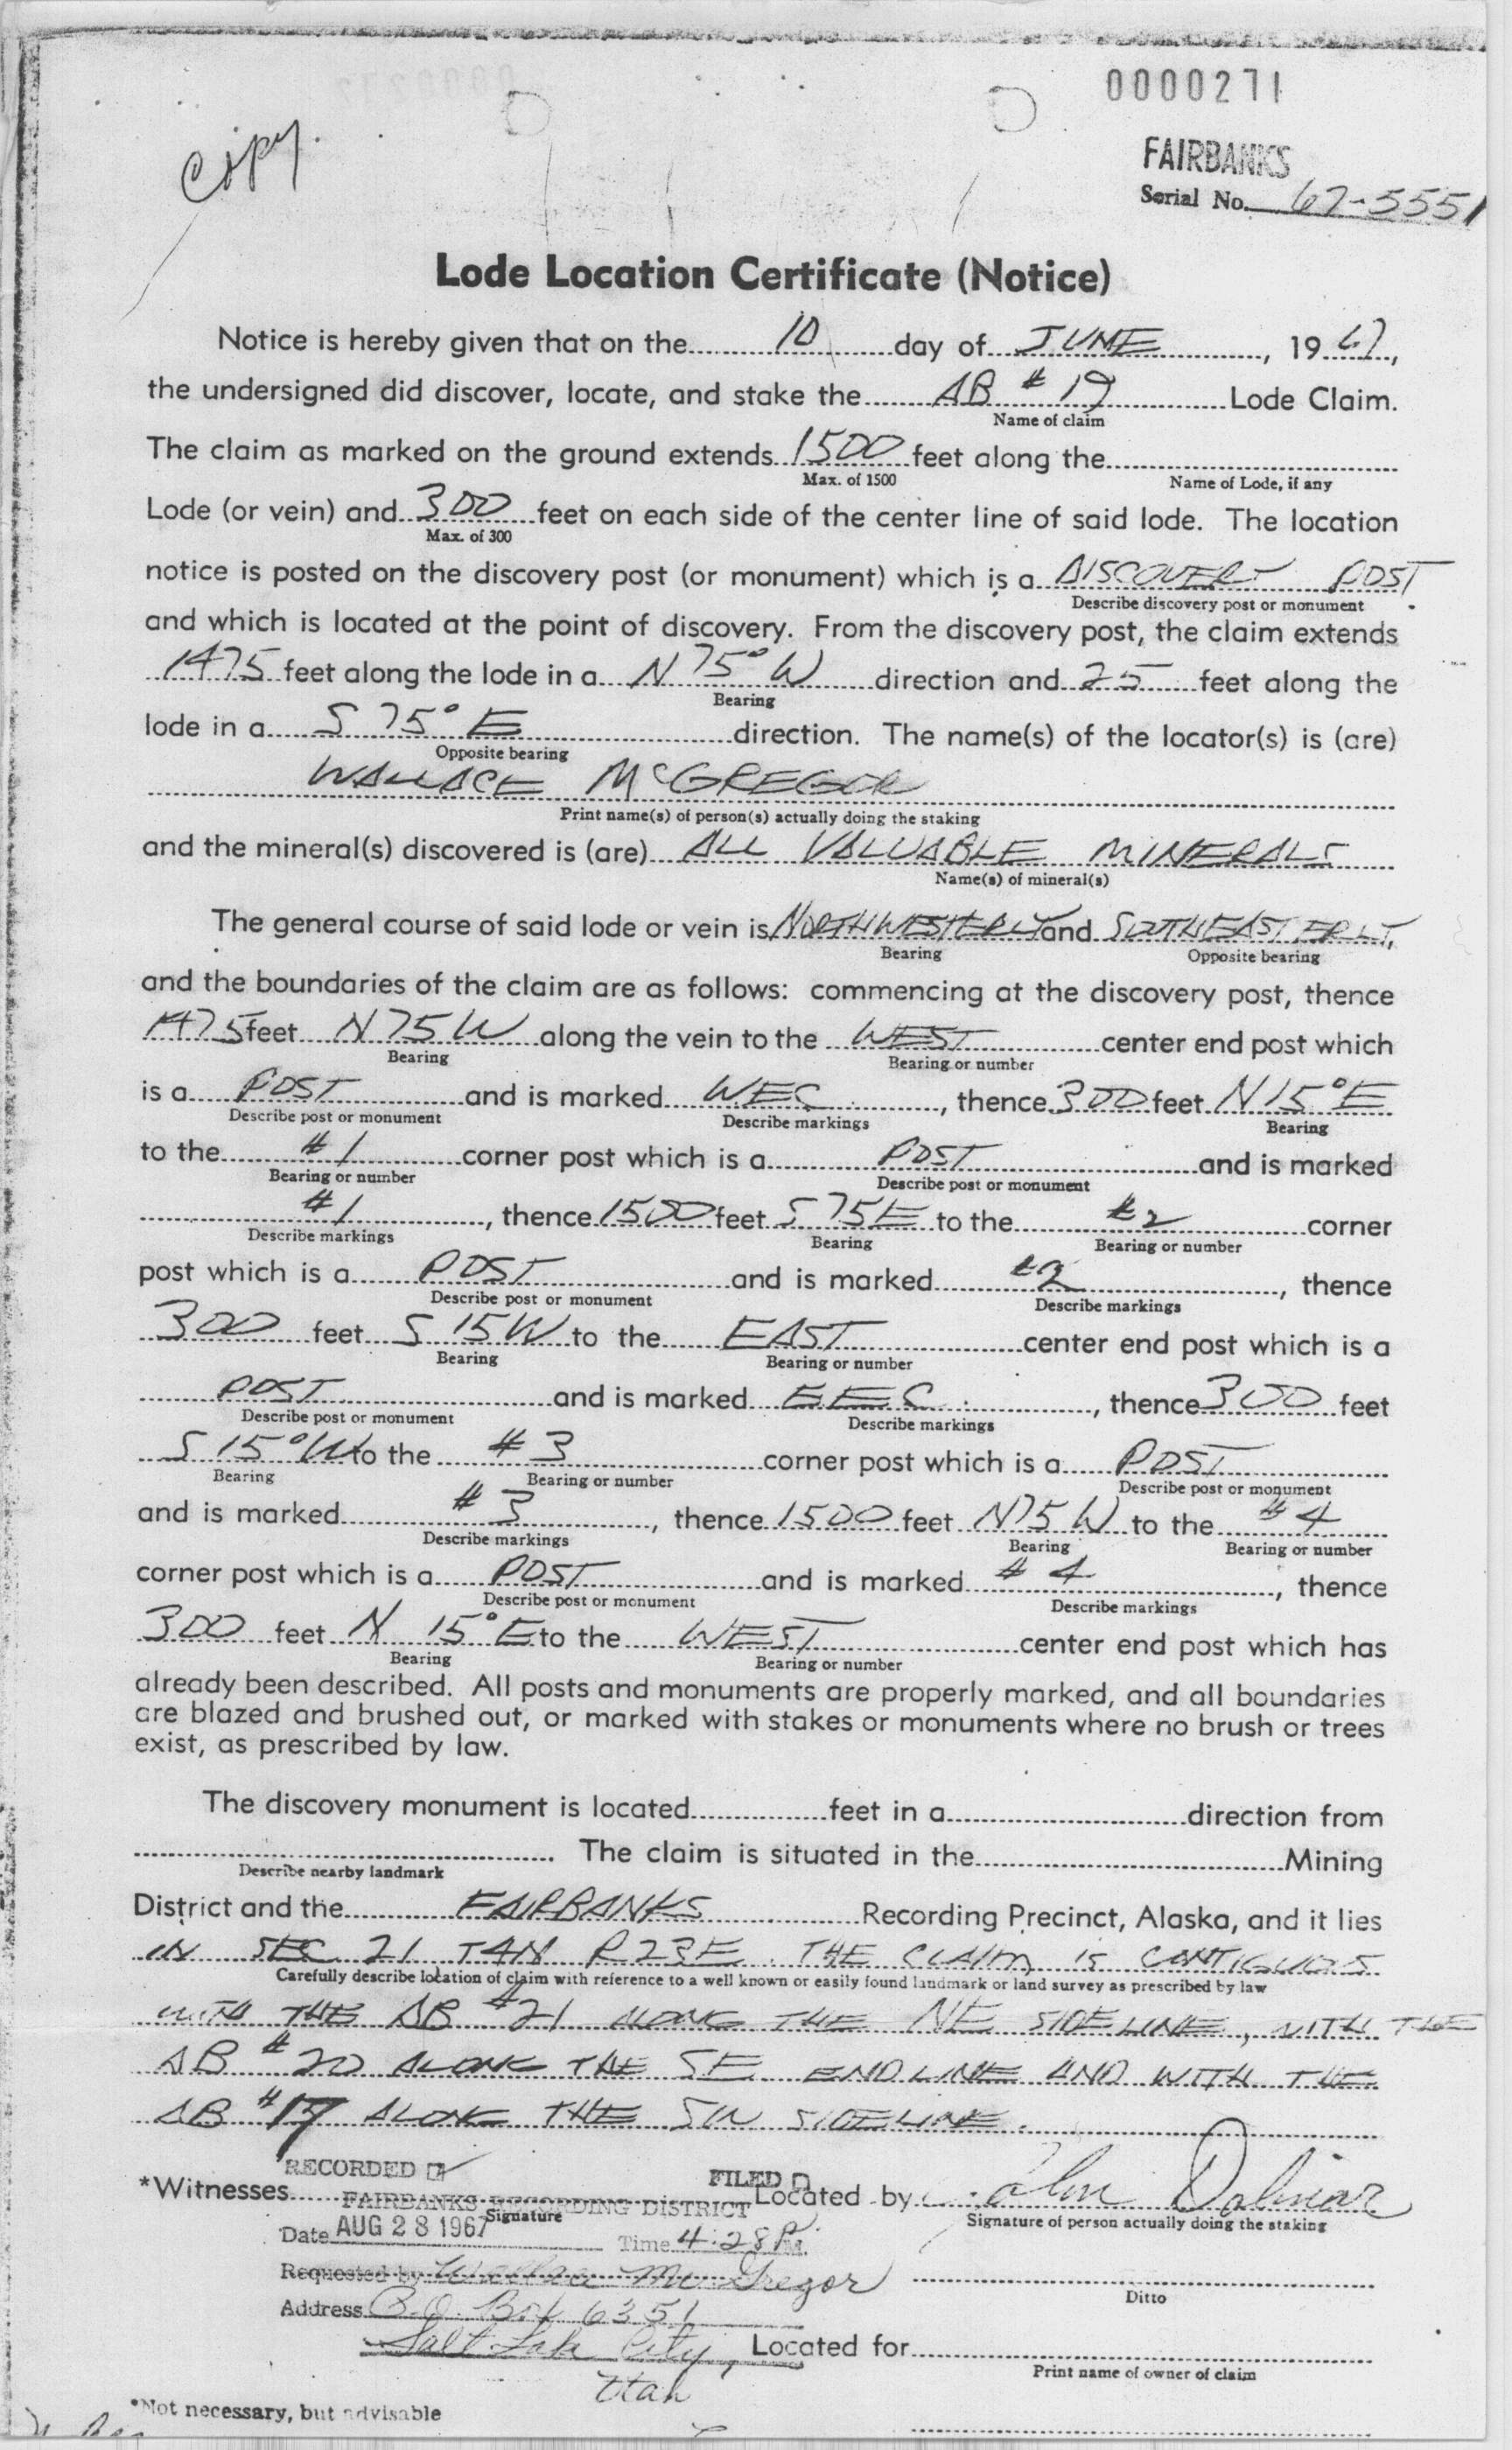 0000271
copy.
FAIRBANKS
Serial No. 67-5551
Lode Location Certificate (Notice)
Notice is hereby given that on the 10 day of JUNE, 1967,
the undersigned did discover, locate, and stake the AB #19 Lode Claim.
Name of claim
The claim as marked on the ground extends 1500 feet along the
Max. of 1500 Name of Lode, if any
Lode (or vein) and 300 feet on each side of the center line of said lode. The location
Max. of 300
notice is posted on the discovery post (or monument) which is a DISCOVERY POST
Describe discovery post or monument
and which is located at the point of discovery. From the discovery post, the claim extends
1475 feet along the lode in a N 75° W direction and 25 feet along the
Bearing
lode in a S 75° E direction. The name(s) of the locator(s) is (are)
Opposite bearing
WALLACE McGREGOR
Print name(s) of person(s) actually doing the staking
and the mineral(s) discovered is (are) ALL VALUABLE MINERALS
Name(s) of mineral(s)
The general course of said lode or vein is NORTHWESTERLY and SOTHEASTERLY,
Bearing Opposite bearing
and the boundaries of the claim are as follows: commencing at the discovery post, thence
1475 feet N 75 W along the vein to the WEST center end post which
Bearing Bearing or number
is a POST and is marked WEC, thence 300 feet N 15° E
Describe post or monument Describe markings Bearing
to the #1 corner post which is a POST and is marked
Bearing or number Describe post or monument
#1, thence 1500 feet S 75 E to the #2 corner
Describe markings Bearing Bearing or number
post which is a POST and is marked #2, thence
Describe post or monument Describe markings
300 feet S 15 W to the EAST center end post which is a
Bearing Bearing or number
POST and is marked EEC, thence 300 feet
Describe post or monument Describe markings
S 15° W to the #3 corner post which is a POST
Bearing Bearing or number Describe post or monument
and is marked #3, thence 1500 feet N 75 W to the #4
Describe markings Bearing Bearing or number
corner post which is a POST and is marked #4, thence
Describe post or monument Describe markings
300 feet N 15° E to the WEST center end post which has
Bearing Bearing or number
already been described. All posts and monuments are properly marked, and all boundaries
are blazed and brushed out, or marked with stakes or monuments where no brush or trees
exist, as prescribed by law.
The discovery monument is located feet in a direction from
The claim is situated in the Mining
Describe nearby landmark
District and the FAIRBANKS Recording Precinct, Alaska, and it lies
IN SEC 21 T4N R23E. THE CLAIM IS CONTIGUOUS
Carefully describe location of claim with reference to a well known or easily found landmark or land survey as prescribed by law
WITH THE AB #21 ALONG THE NE SIDELINE, WITH THE
AB #20 ALONG THE SE ENDLINE AND WITH THE
AB #17 ALONG THE SW SIDELINE.
RECORDED FILED
*Witnesses Located by John Dalmar
FAIRBANKS RECORDING DISTRICT
Signature Signature of person actually doing the staking
Date AUG 28 1967 Time 4:28 P.M.
Requested by Wallace McGregor
Ditto
Address P.O. Box 6351
Salt Lake City, Located for
Utah Print name of owner of claim
*Not necessary, but advisable